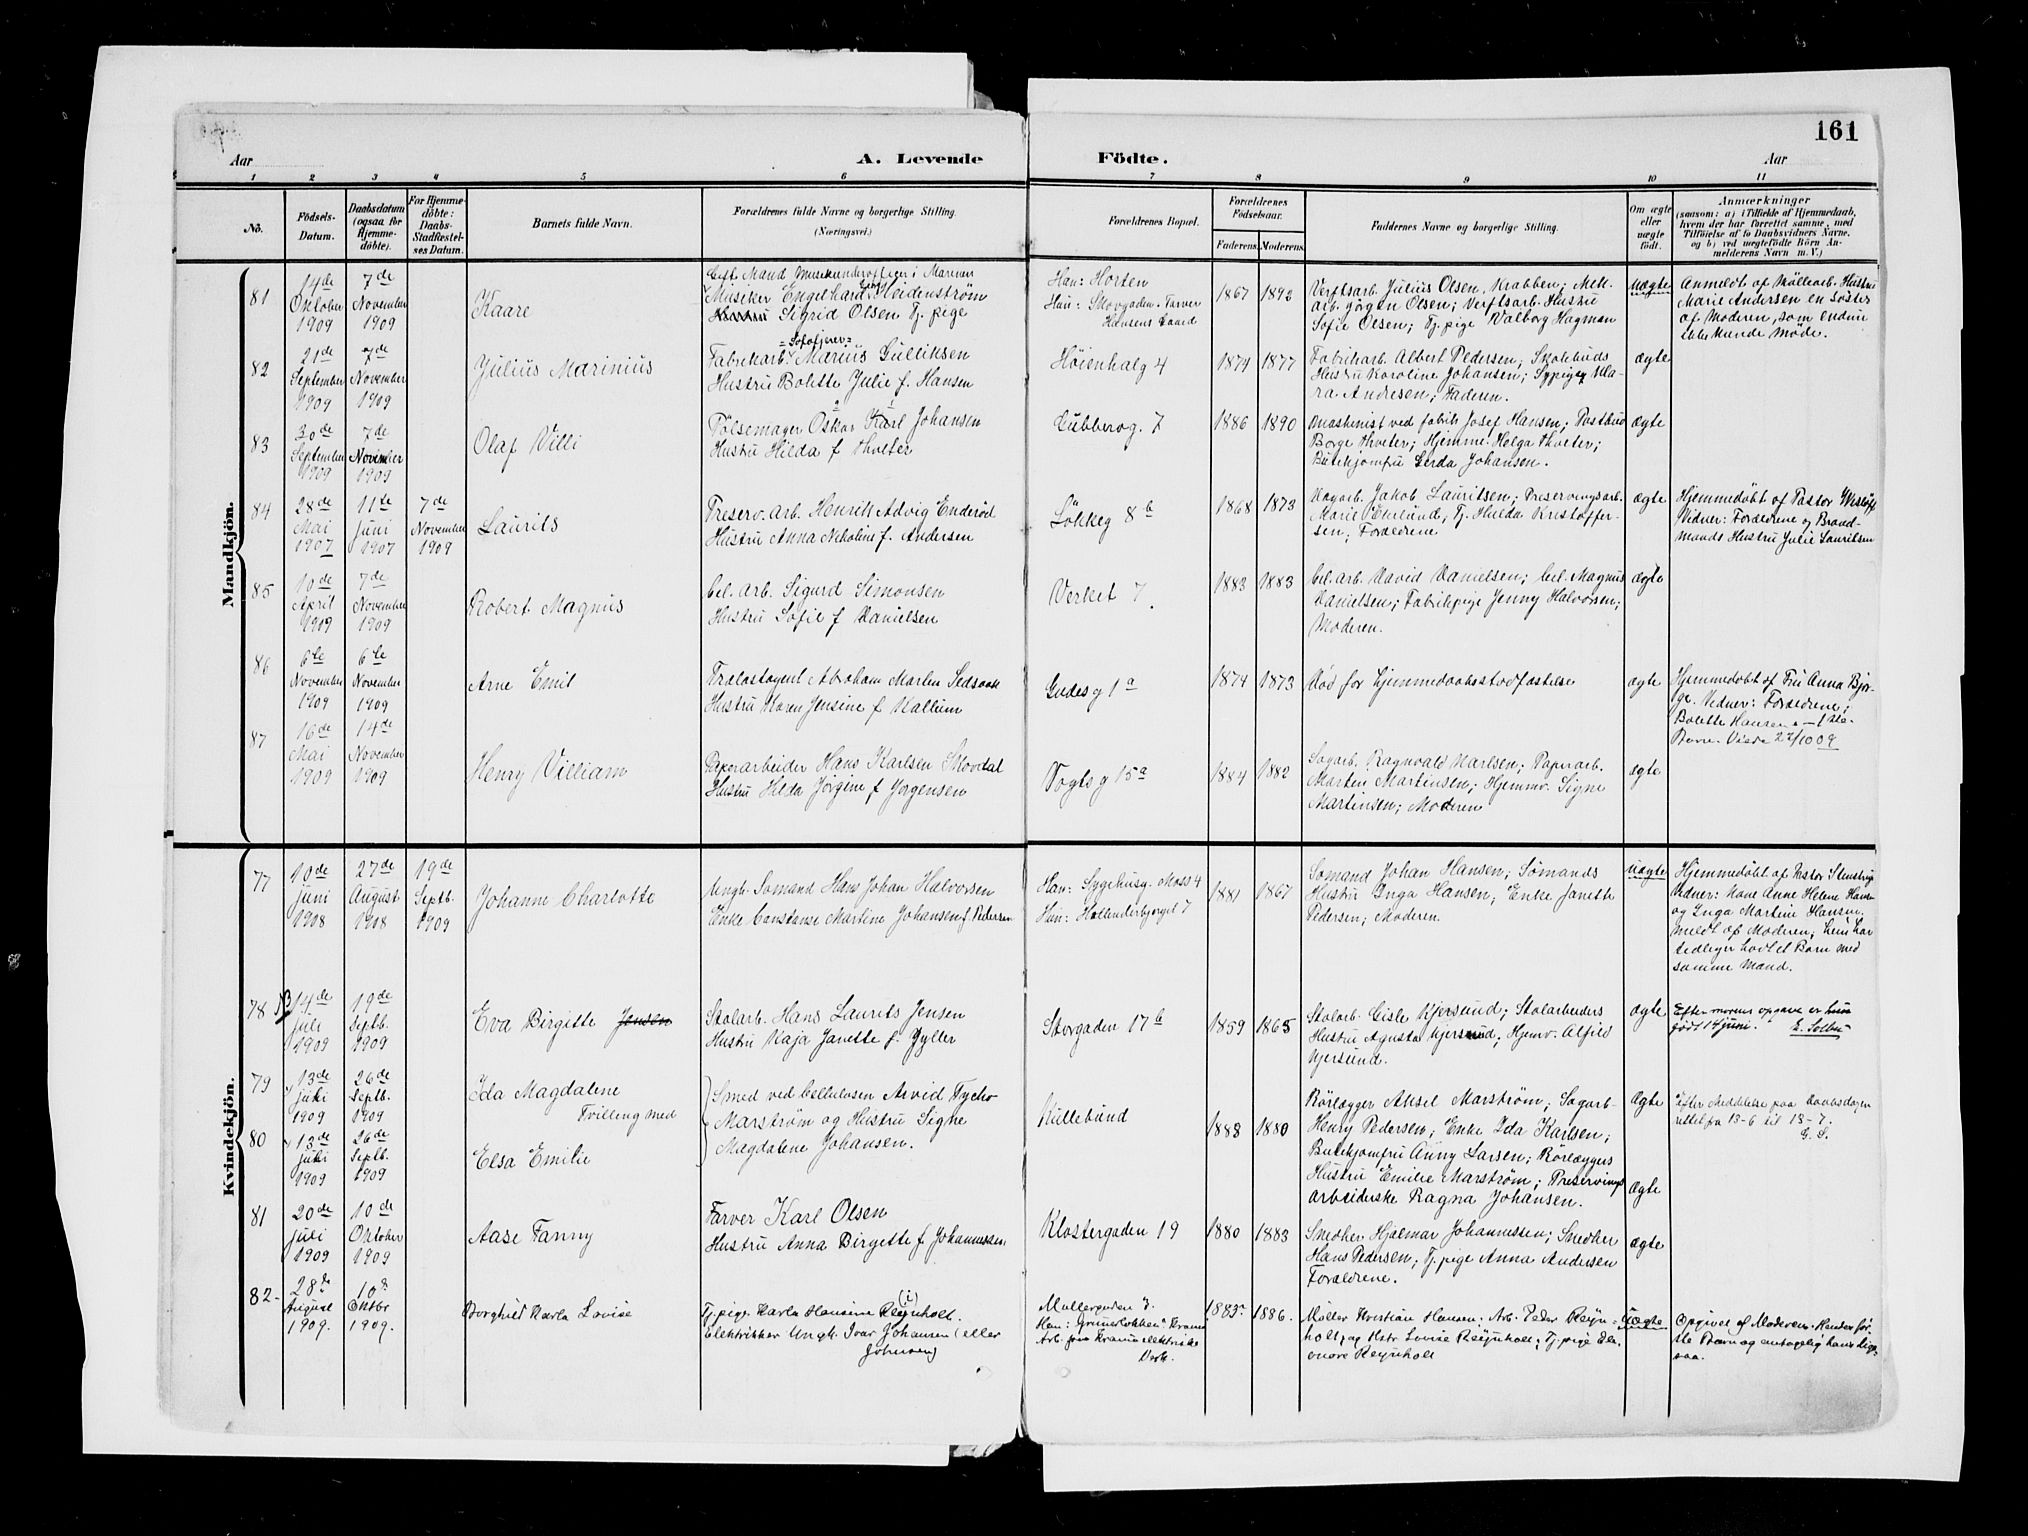 161
Aar
A. Levende
Födte.
Aar
1 2 3 4 5 6 7 8 9 10 11
No.
Födsels-
Datum.
Daabsdatum
(ogsaa for
Hjemme-
döbte).
For Hjemme-
döbte:
Daabs-
Stadfæstel-
ses Datum.
Barnets fulde Navn.
Forældrenes fulde Navne og borgerlige Stilling.
(Næringsvei.)
Forældrenes Bopæl.
Forældrenes
Födselsaar.
Faderens. Moderens.
Faddernes Navne og borgerlige Stilling.
Om ægte
eller
uægte
født.
Anmærkninger
(saasom: a) i Tilfælde af Hjemmedaab,
hvem der har forrettet samme, med
Tilföielse af to Daabsvidners Navne,
og b) ved uægtefödte Börn An-
melderens Navn m. V.)
Mandkjön.
81
14de
Oktober
1909
7de
November
1909
Kaare
Gift Mand Musikunderoffiger i Marinen
Musiker Engelhard Heidenström
Hustru Sigrid Olsen Tj. pige
Han: Horten
Hun: Skovgaden. Farver
Hansens Gaard
1867 1892
Verftsarb. Julius Olsen, Krabben; Mek.
arb. Jörgen Olsen; Verftsarb. Hustru
Sofie Olsen; Tj. pige Valborg Hagman
uægte
Anmeldt af Möllearb. Hustru
Marie Andersen en Söster
af Moderen, som endnu
ikke kunde möde.
82
21de
September
1909
7de
November
1909
Julius Marinius
=Sofafjerer=
Fabrikarb. Marius Gulliksen
Hustru Bolette Julie f. Hansen
Höienhalg 4
1879 1877
Fabrikarb. Albert Pedersen; Skolebuds
Hustru Karoline Johansen; Sypige Kla-
ra Andresen; Faderen.
ægte
83
30de
September
1909
7de
November
1909
Olaf Villi
Pölsemager Oskar Karl Johansen
Hustru Hilda f. Tholter
Cubberog. 7
1886 1890
Maskinist ved fabrik Josef Hansen; Postbud
Borge Tholter; Hjemme. Helga Tholter;
Butikjomfru Gerda Johansen.
ægte
84
28de
Mai
1907
11te
Juni
1907
7de
November
1909
Laurits
Preserv. arb. Henrik Advig Enderöd
Hustru Anna Nikoline f. Andersen
Lökkeg 8b
1868 1873
Dagarb. Jakob Lauritsen; Preservingsarb.
Marie Enlund; Tj. Hulda Kristoffer-
sen; Forældrene
ægte
Hjemmedöbt af Pastor Wislöff
Vidner: Forældrene og Brand-
mands Hustru Julie Lauritsen
85
10de
April
1909
7de
November
1909
Robert Magnus
Cel. arb. Sigurd Simonsen
Hustru Sofie f Danielsen
Verket 7.
1883 1883
Cel. arb. David Danielsen; Cel. Magnus
Danielsen; Fabrikpige Jenny Halvorsen;
Moderen.
ægte
86
6te
November
1909
6te
November
1909
Arne Emil
Trælastagent Abraham Martin
Hustru Karen Jensine f Kallum
Gudes g 1a
1874 1873
Död för hjemmedaabsstadfæstelse
ægte
Hjemmedöbt af Fru Anna Bjor-
ge. Vidner: Forældrene;
Bolette Hansen.
87
16de
Mai
1909
14de
November
1909
Henry Villiam
Papirarbeider Hans Karlsen Skovdal
Hustru Hilda Jörgine f Jörgensen
Vogts g 15a
1884 1882
Sagarb. Ragnvald Karlsen; Papirarb.
Martin Martinsen; Hjemmv. Signe
Martinsen; Moderen
ægte
Kvindekjön.
77
10de
Juni
1908
27de
August
1908
19de
Septb.
1909
Johanne Charlotte
Ungk. Sømand Hans Johan Halvorsen
Enke Constanse Martine Johansen f. Pedersen
Han: Sygehusg. Moss 4
Hun: Hollenderborget 7
1881 1867
Sømand Johan Hansen; Sømands
Hustru Inga Hansen; Enke Janette
Pedersen; Moderen.
uægte
Hjemmedöbt af Pastor Stenstrup
Vidner: Kone Anne Helene
og Inga Martine Hansen.
meldt af Moderen; hun har
tidligere havt et Barn med
samme Mand.
78
13 14de
Juli
1909
19de
Septb.
1909
Eva Birgitte Jensen
Stolarb. Hans Laurits Jensen
Hustru Kaja Janette f. Gyller
Storgaden 17b
1859 1865
Stolarb. Gisle Kjersund; Stolarbeiders
Hustru Agusta Kjersund; Hjemv. Alfild
Kjersund.
ægte
Efter morens opgave er hun
født 14 juni. E. Solbu
79
13de
Juli
1909
26de
Septb.
1909
Ida Magdalene
Tvilling med
Smed ved Cellulosen Arvid Tycho
Marström og Hustru Signe
Magdalene Johansen.
Kullebund
1888 1880
Rörlægger Aksel Marström; Sagarb.
Henry Pedersen; Enke Ida Karlsen;
Butikjomfru Anny Larsen; Rörlæggers
Hustru Emilie Marström; Preservings
arbeiderske Ragna Johansen.
ægte
Efter Meddelse paa Daabsdagen
rettet fra 13-6 til 13-7.
G. S.
80
13de
Juli
1909
26de
Septb.
1909
Elsa Emilie
ægte
81
20de
Juli
1909
10de
Oktober
1909
Aase Fanny
Farver Karl Olsen
Hustru Anna Birgette f. Johannessen
Klostergaden 19
1880 1883
Snedker Hjalmar Johannessen; Snedker
Hans Pedersen; Tj. pige Anna Andersen
Forældrene.
ægte
82-
28de
August
1909.
10de
Oktbr
1909.
Borghild Karla Lovise
Tj. pige. Karla Hansine Reynholt. (i)
Elektrikker Ungk. Ivar Johansen (eller
Johnsen)
Møllergaden 3.
Han: Grünerløkken. Kristia
Arb. paa Kristia elektriske
Verk.
1883? 1886.
Møller Kristian Hansen; Arb. Peder Reyn-
holt og Hstr Lovise Reynholt; Tj. pige Ele-
onore Reynholt
uægte
Opgivet af Moderen. Hendes før-
ste Barn og antagelig hans lige-
saa.